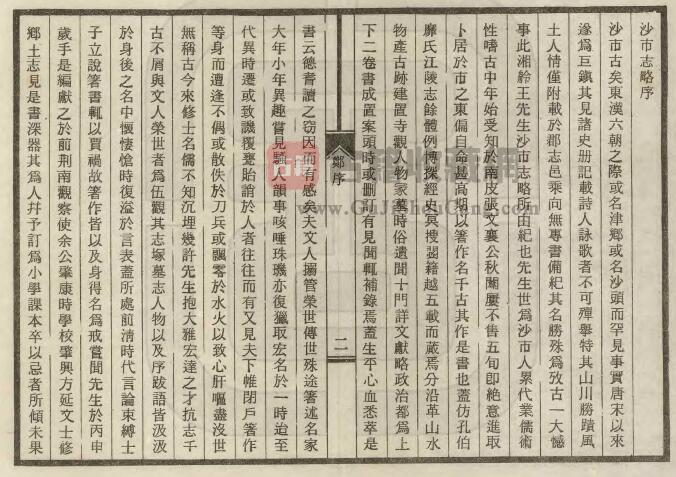 沙市志略序
沙市古矣東漢六朝之際或名津鄉或名沙頭而罕見事實唐宋以來
遂爲巨鎮其見諸史册記載詩人詠歌者不可殫舉特其山川勝蹟風
土人情僅附載於郡志邑乘向無專書備紀其名勝殊爲攷古一大憾
事此湘舲王先生沙市志略所由紀也先生世爲沙市人累代業儒術
性嗜古中年始受知於南皮張文襄公秋闈屢不售五旬即絶意進取
卜居於市之東偏自命甚高期以箸作名千古其作是書也蓋仿孔伯
靡氏江陵志餘體例博探經史冥搜閣籍越五載而蕆焉分沿革山水
物產古跡建置寺觀人物冢墓時俗遺聞十門詳文獻略政治都爲上
下二卷書成置案頭時或删訂有見聞輒補錄焉蓋生平心血悉萃是
鄭序
二
書云德耆讀之窃因而有感矣夫文人搦管榮世傳世殊途箸述名家
大年小年異趣嘗見騷人韻事咳唾珠璣亦復獵取宏名於一時迨至
代異時遷或致譏覆甕貽誚於人者往往而有又見夫下帷閉戶箸作
等身而遭逢不偶或散佚於刀兵或飄零於水火以致心肝嘔盡沒世
無稱古今來修士名儒不知沉埋幾許先生抱大雅宏達之才抗志千
古不屑與文人榮世者爲伍觀其志塚墓志人物以及序跋語皆汲汲
於身後之名中懷悽愴時復溢於言表蓋所處前清時代言論束縛士
子立說箸書輒以賈禍故箸作皆以及身得名爲戒嘗聞先生於丙申
歲手是編獻之於前荆南觀察使余公肇康時學校肇興方延文士修
鄉土志見是書深器其爲人幷予訂爲小學課本卒以忌者所傾未果
古籍收藏网
www.GuJiShouCang.com